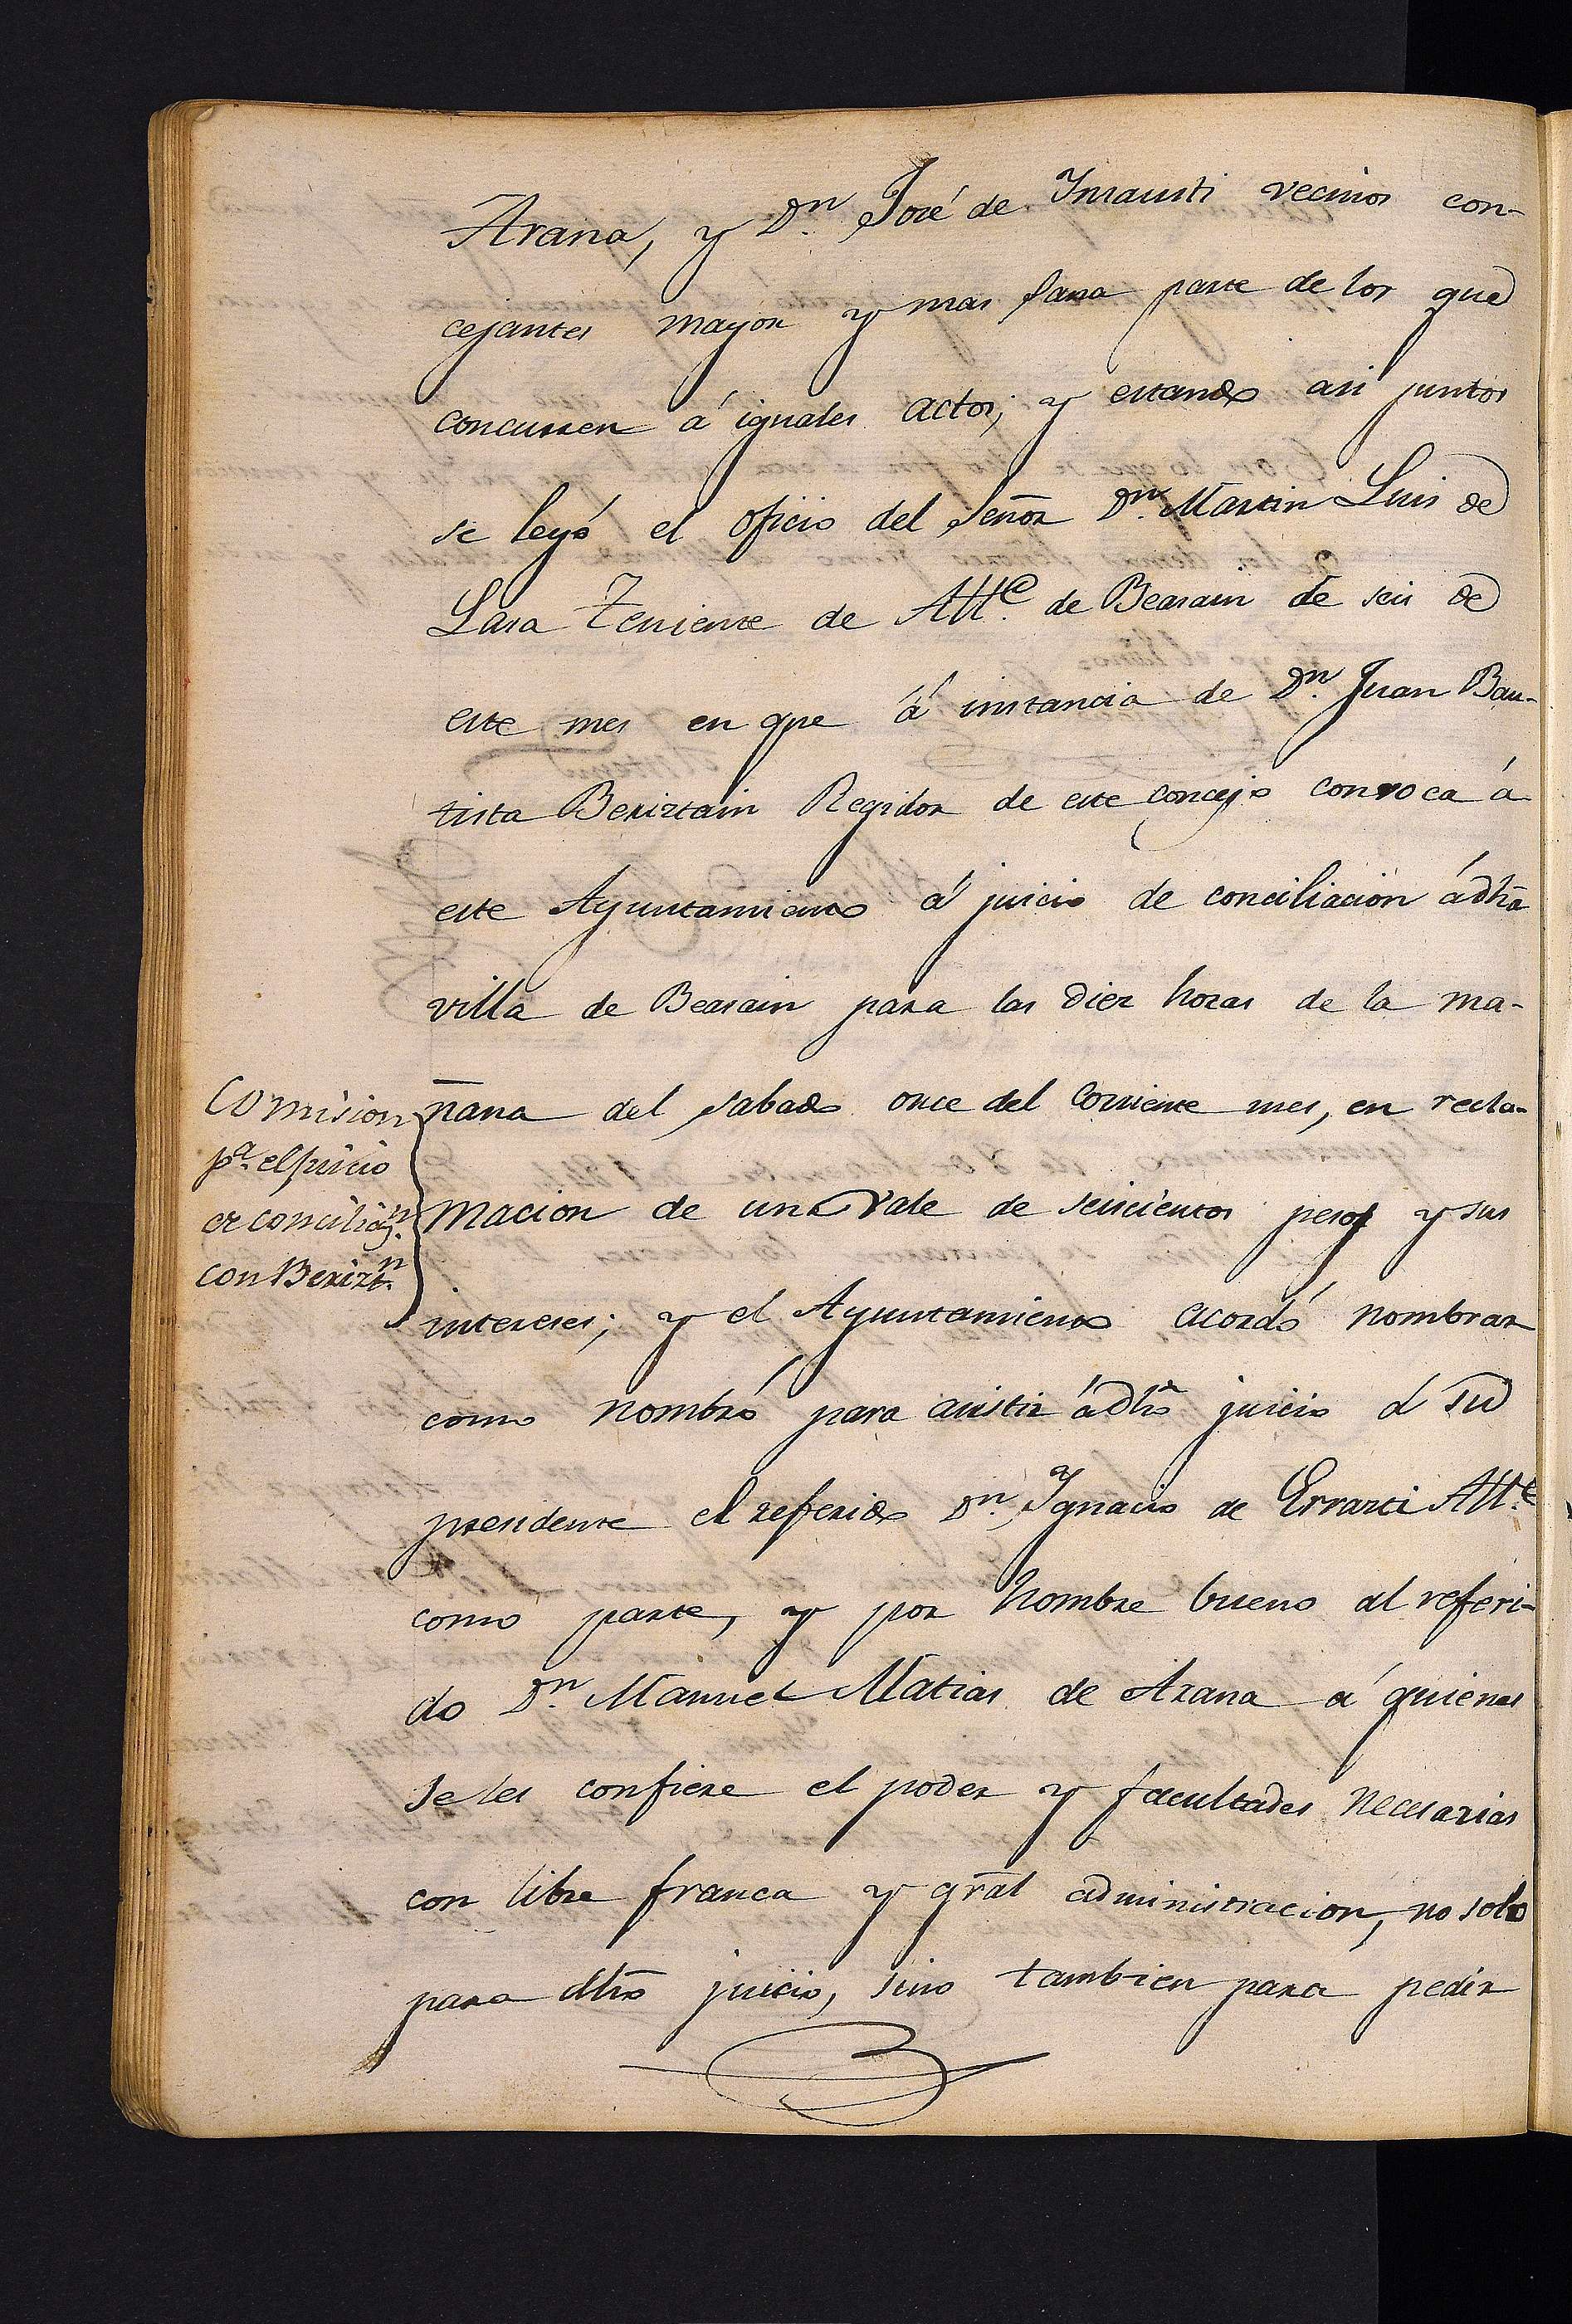 Arana, y Dn. José de Insausti vecinos con-
cejantes mayor y mas sana parte de los que
concurren á iguales actos; y estando asi juntos
se leyó el oficio del Señor Dn. Martin Luis de
Lasa Teniente de Alle. de Beasain de seis de
este mes en que á instancia de Dn. Juan Bau-
tista Beriztain Regidor de este concejo convoca á
este Ayuntamiento á juicio de conciliacion á dha
villa de Beasain para las diez horas de la ma-
ñana del sabado once del corriente mes, en recla-
macion de un vale de seiscientos pesos y sus
intereses; y el Ayuntamiento acordó nombrar
como nombró para asistir á dho juicio á su
presidente el referido Dn. Ignacio de Errazti Alle.
como parte, y por hombre bueno al referi-
do Dn. Manuel Matias de Arana á quienes
se les confiere el poder y facultades necesarias
con libre franca y gral administracion, no solo
para dho juicio, sino tambien para pedir
Comision
pa. el juicio
de conciliaon.
con Berizn.